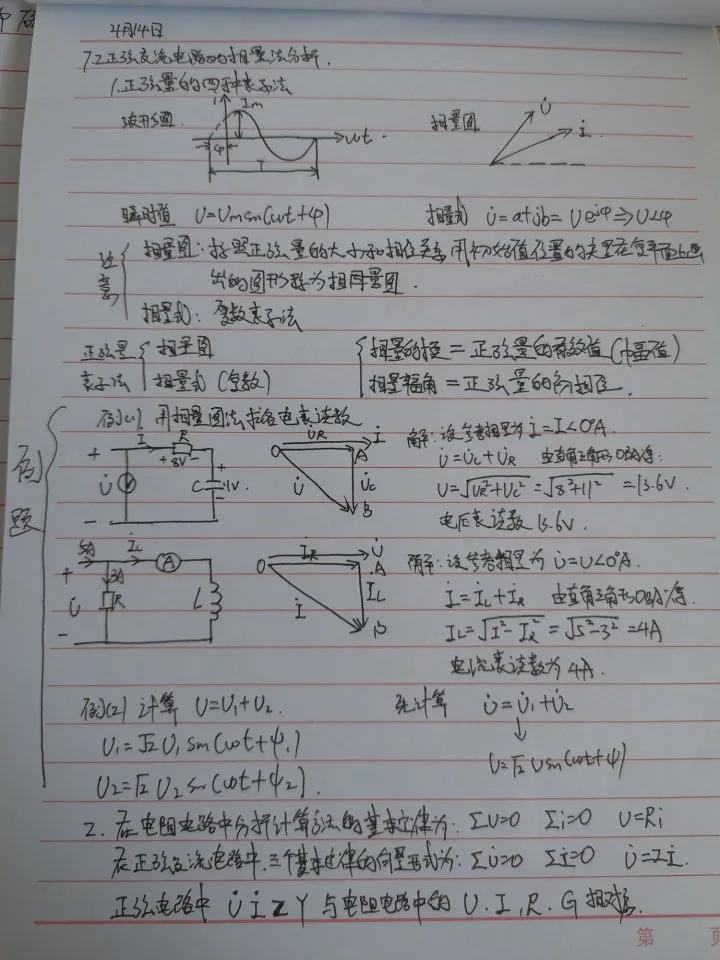 4月14日
7.2正弦交流电路的相量法分析.
1.正弦量的四种表示法
波形图
i
Im
ωt
φ
T
相量图
U̇
İ
瞬时值 U=Umsin(ωt+φ)
相量式 U̇=a+jb=Ue^jφ⇒U∠φ
注意
相量图:按照正弦量的大小和相位关系,用初始位置的矢量在复平面上画
出的图形称为相量图.
相量式:复数表示法
正弦量
表示法
相量图
相量式(复数)
相量的模=正弦量的有效值(幅值)
相量辐角=正弦量的初相位.
例题
例(1).用相量图法求各电表读数
+ I R
+8V-
U̇
C 11V
-
O U̇R İ
A
U̇ U̇C
B
解:设参考相量为İ=I∠0°A.
U̇=U̇C+U̇R 由直角三角形OBA得:
U=√UR²+UC²=√8²+11²=13.6V.
电压表读数13.6V.
5A İL A
+ 3A
U R L
-
O İR U̇
A
İ IL
B
解:设参考相量为U̇=U∠0°A.
İ=İL+İR 由直角三角形OBA得.
IL=√I²-IR²=√5²-3²=4A
电流表读数为4A.
例(2) 计算 U=U1+U2.
U1=√2U1sin(ωt+ψ1)
U2=√2U2sin(ωt+ψ2).
先计算 U̇=U̇1+U̇2
↓
U=√2Usin(ωt+ψ)
2.在电阻电路中分析计算方法的基本定律为:Σu=0 Σi=0 U=Ri
在正弦交流电路中,三个基本定律的向量形式为:ΣU̇=0 Σİ=0 U̇=Zİ.
正弦电路中 U̇ İ Z Y 与电阻电路中的U.I.R.G相对应.
第 页